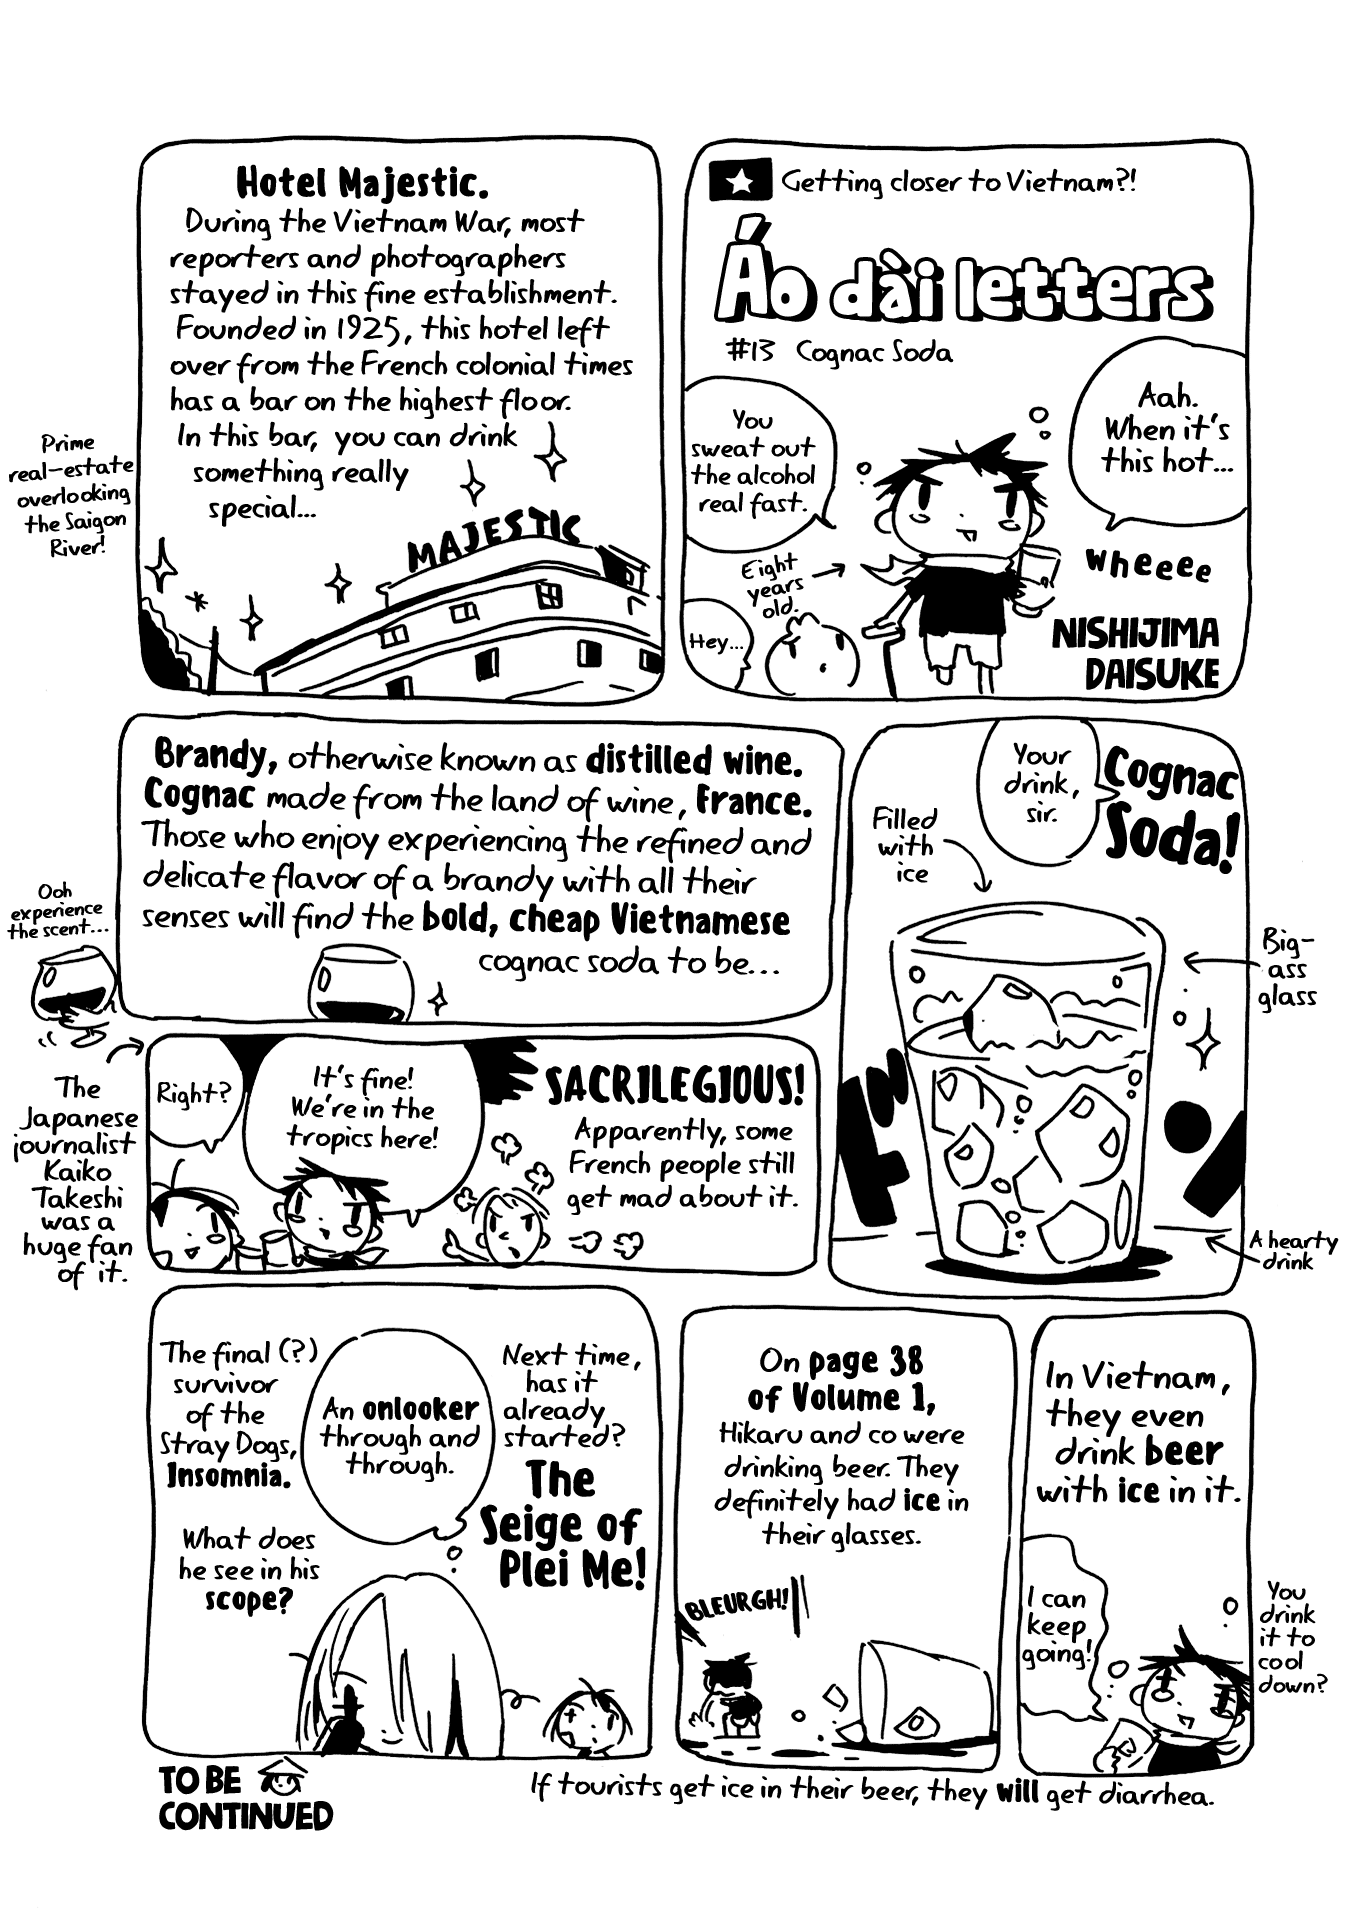 Getting closer to Vietnam?!
Áo dài letters
#13 Cognac Soda
Aah.
When it's
this hot...
You
sweat out
the alcohol
real fast.
Eight
years
old.
wheeee
Hey...
NISHIJIMA
DAISUKE
Hotel Majestic.
During the Vietnam War, most
reporters and photographers
stayed in this fine establishment.
Founded in 1925, this hotel left
over from the French colonial times
has a bar on the highest floor.
In this bar, you can drink
something really
special...
MAJESTIC
Prime
real-estate
overlooking
the Saigon
River!
Cognac
Soda!
Your
drink,
sir.
Filled
with
ice
Big-
ass
glass
A hearty
drink
Brandy, otherwise known as distilled wine.
Cognac made from the land of wine, France.
Those who enjoy experiencing the refined and
delicate flavor of a brandy with all their
senses will find the bold, cheap Vietnamese
cognac soda to be...
Ooh
experience
the scent...
SACRILEGIOUS!
Apparently, some
French people still
get mad about it.
It's fine!
We're in the
tropics here!
Right?
The
Japanese
journalist
Kaiko
Takeshi
was a
huge fan
of it.
In Vietnam,
they even
drink beer
with ice in it.
I can
keep
going!
You
drink
it to
cool
down?
On page 38
of Volume 1,
Hikaru and co were
drinking beer. They
definitely had ice in
their glasses.
BLEURGH!
If tourists get ice in their beer, they will get diarrhea.
Next time,
has it
already
started?
The
Seige of
Plei Me!
An onlooker
through and
through.
The final (?)
survivor
of the
Stray Dogs,
Insomnia.
What does
he see in his
scope?
TO BE
CONTINUED